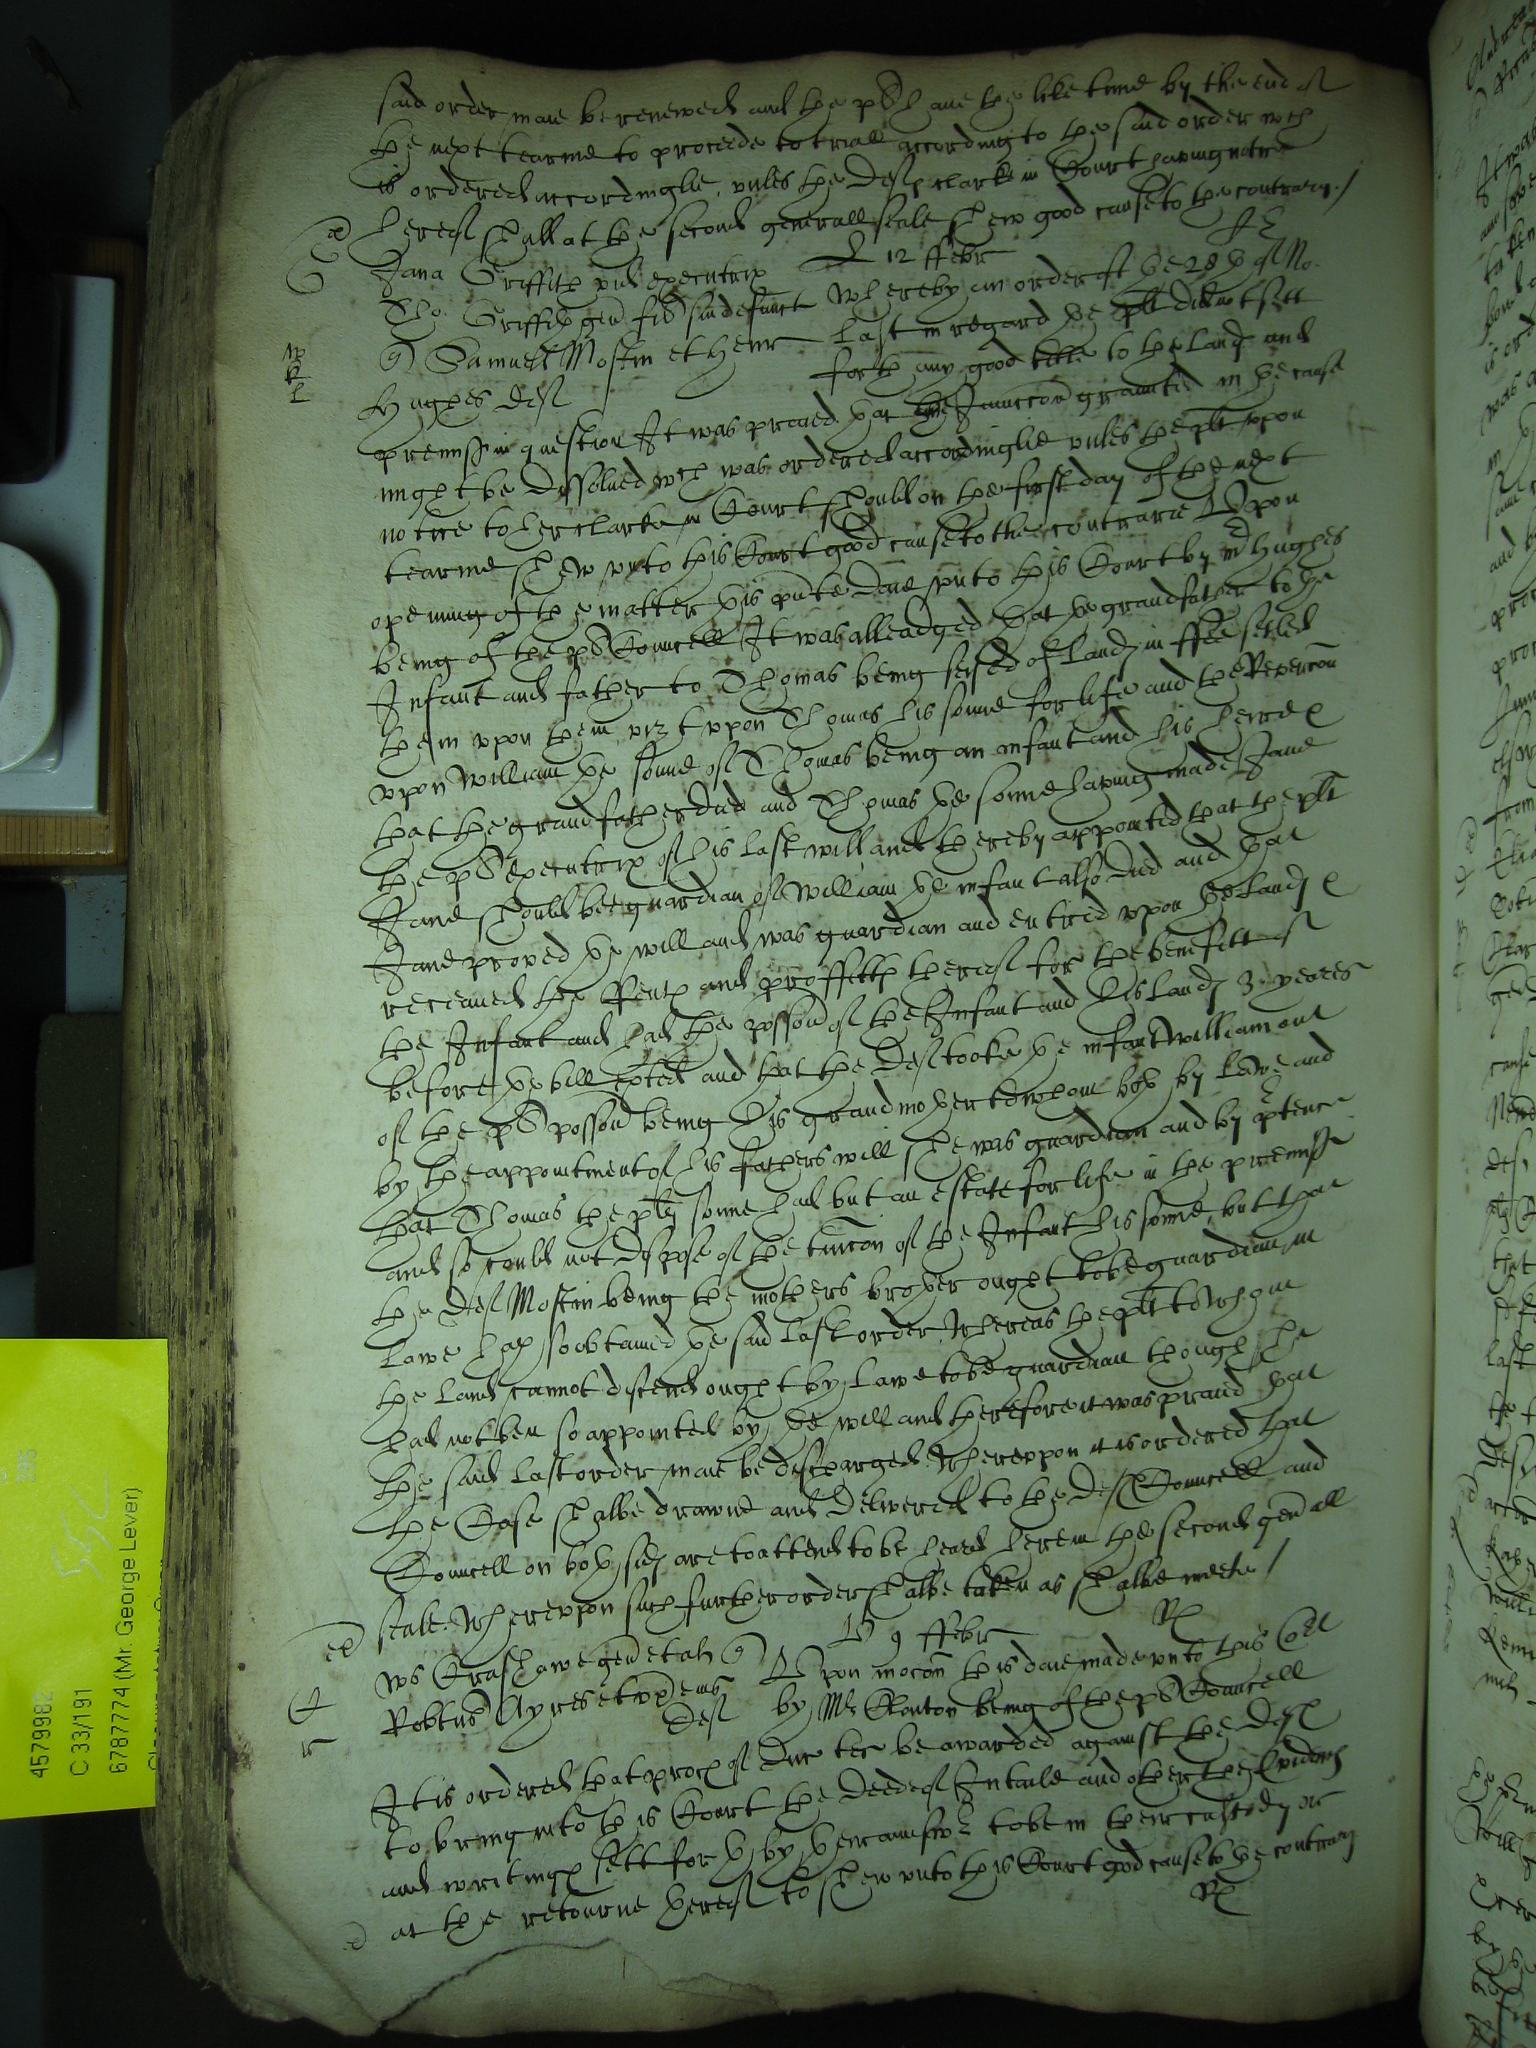 said order maie be renewed and the pl haue the like time by the end of
the next tearme to proceede to triall according to the said order wch
is ordered accordinglie, unles the Deftes clarke in Court having notice
hereof shall at the second generall seale shew good cause to the contrary./
Jana Griffith vid executrix D 12 ffebr
Tho: Griffith gen fil sui defunct Whereby an order of ye 28th of No.
Samuel Mostin et Henr last in regard ye plt did not sett
Hughes Def forth any good title to the Landes and
premisses in question It was praied yat the Iniunccon graunted in ye cause
might be dissolued wch was ordered accordinglie unles the plt upon
notice to her clarke in Court should on the first day of the next
tearme shew unto this Court good cause to the contrarie Upon
opening of the matter this pnte daie unto this Court by mr Hughes
being of the pls Councell It was alleadged yat ye grandfather to the
Infant and father to Thomas being seised of Landes in ffee setled
them upon them vizt upon Thomas his sonne for life and the Revercon
upon William ye sonne of Thomas being an infant and his heires
that the grandfather died and Thomas ye sonne having made Jane
the pl executrix of his last will and thereby appointed that the plt
Jane should bee guardian of William ye infant also died and yat
Jane proved ye will and was guardian and entred upon ye Landes &
receaued the Rents and proffitts thereof for the benefitt of
the Infant and had the possion of the Infant and his Landes 3. yeares
before ye bill exted and that the Def tooke ye infant William out
of the pls possion being his grandmother to whom both by Lawe and
by the appointment of his fathers will she was guardian and by ptence
that Thomas the pltes sonne had but an estate for life in the premisses
and so could not dispose of the tuicon of the Infant his sonne, but that
the Def Mostin being the mothers brother ought to be guardian in
Lawe hath so obtained ye said last order, Whereas the plt to whom
the Land cannot discend ought by Lawe to be guardian though she
had not ben so appointed by ye will and therefore it was praied yat
the said last order maie be discharged Whereupon it is ordered that
the Case shalbe drawne and delivered to the Deftes Councell and
Councell on both sides are to attend to be heard herein the second genall
seale. Whereupon such further order shalbe taken as shalbe meete /
Ws Crashawe gen et al D 9 ffebr
Robtus Ayres et ux eius Upon mocon this daie made unto this Cort
Def by Mr Clonton being of the pls Councell
It is ordered that proces of Duc tec be awarded against the Deftes
to bring into this Court the deedes of Intaile and other the Evidences
and writinges sett forth by their answr to be in their custody or
at the retourne thereof to shew unto this Court good cause to the contrary
4579982
C 33/191
6787774 (Mr. George Lever)